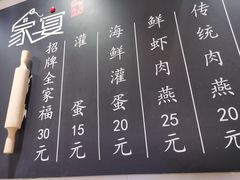 家宴
招牌全家福30元
灌蛋15元
海鲜灌蛋20元
鲜虾肉燕25元
传统肉燕20元